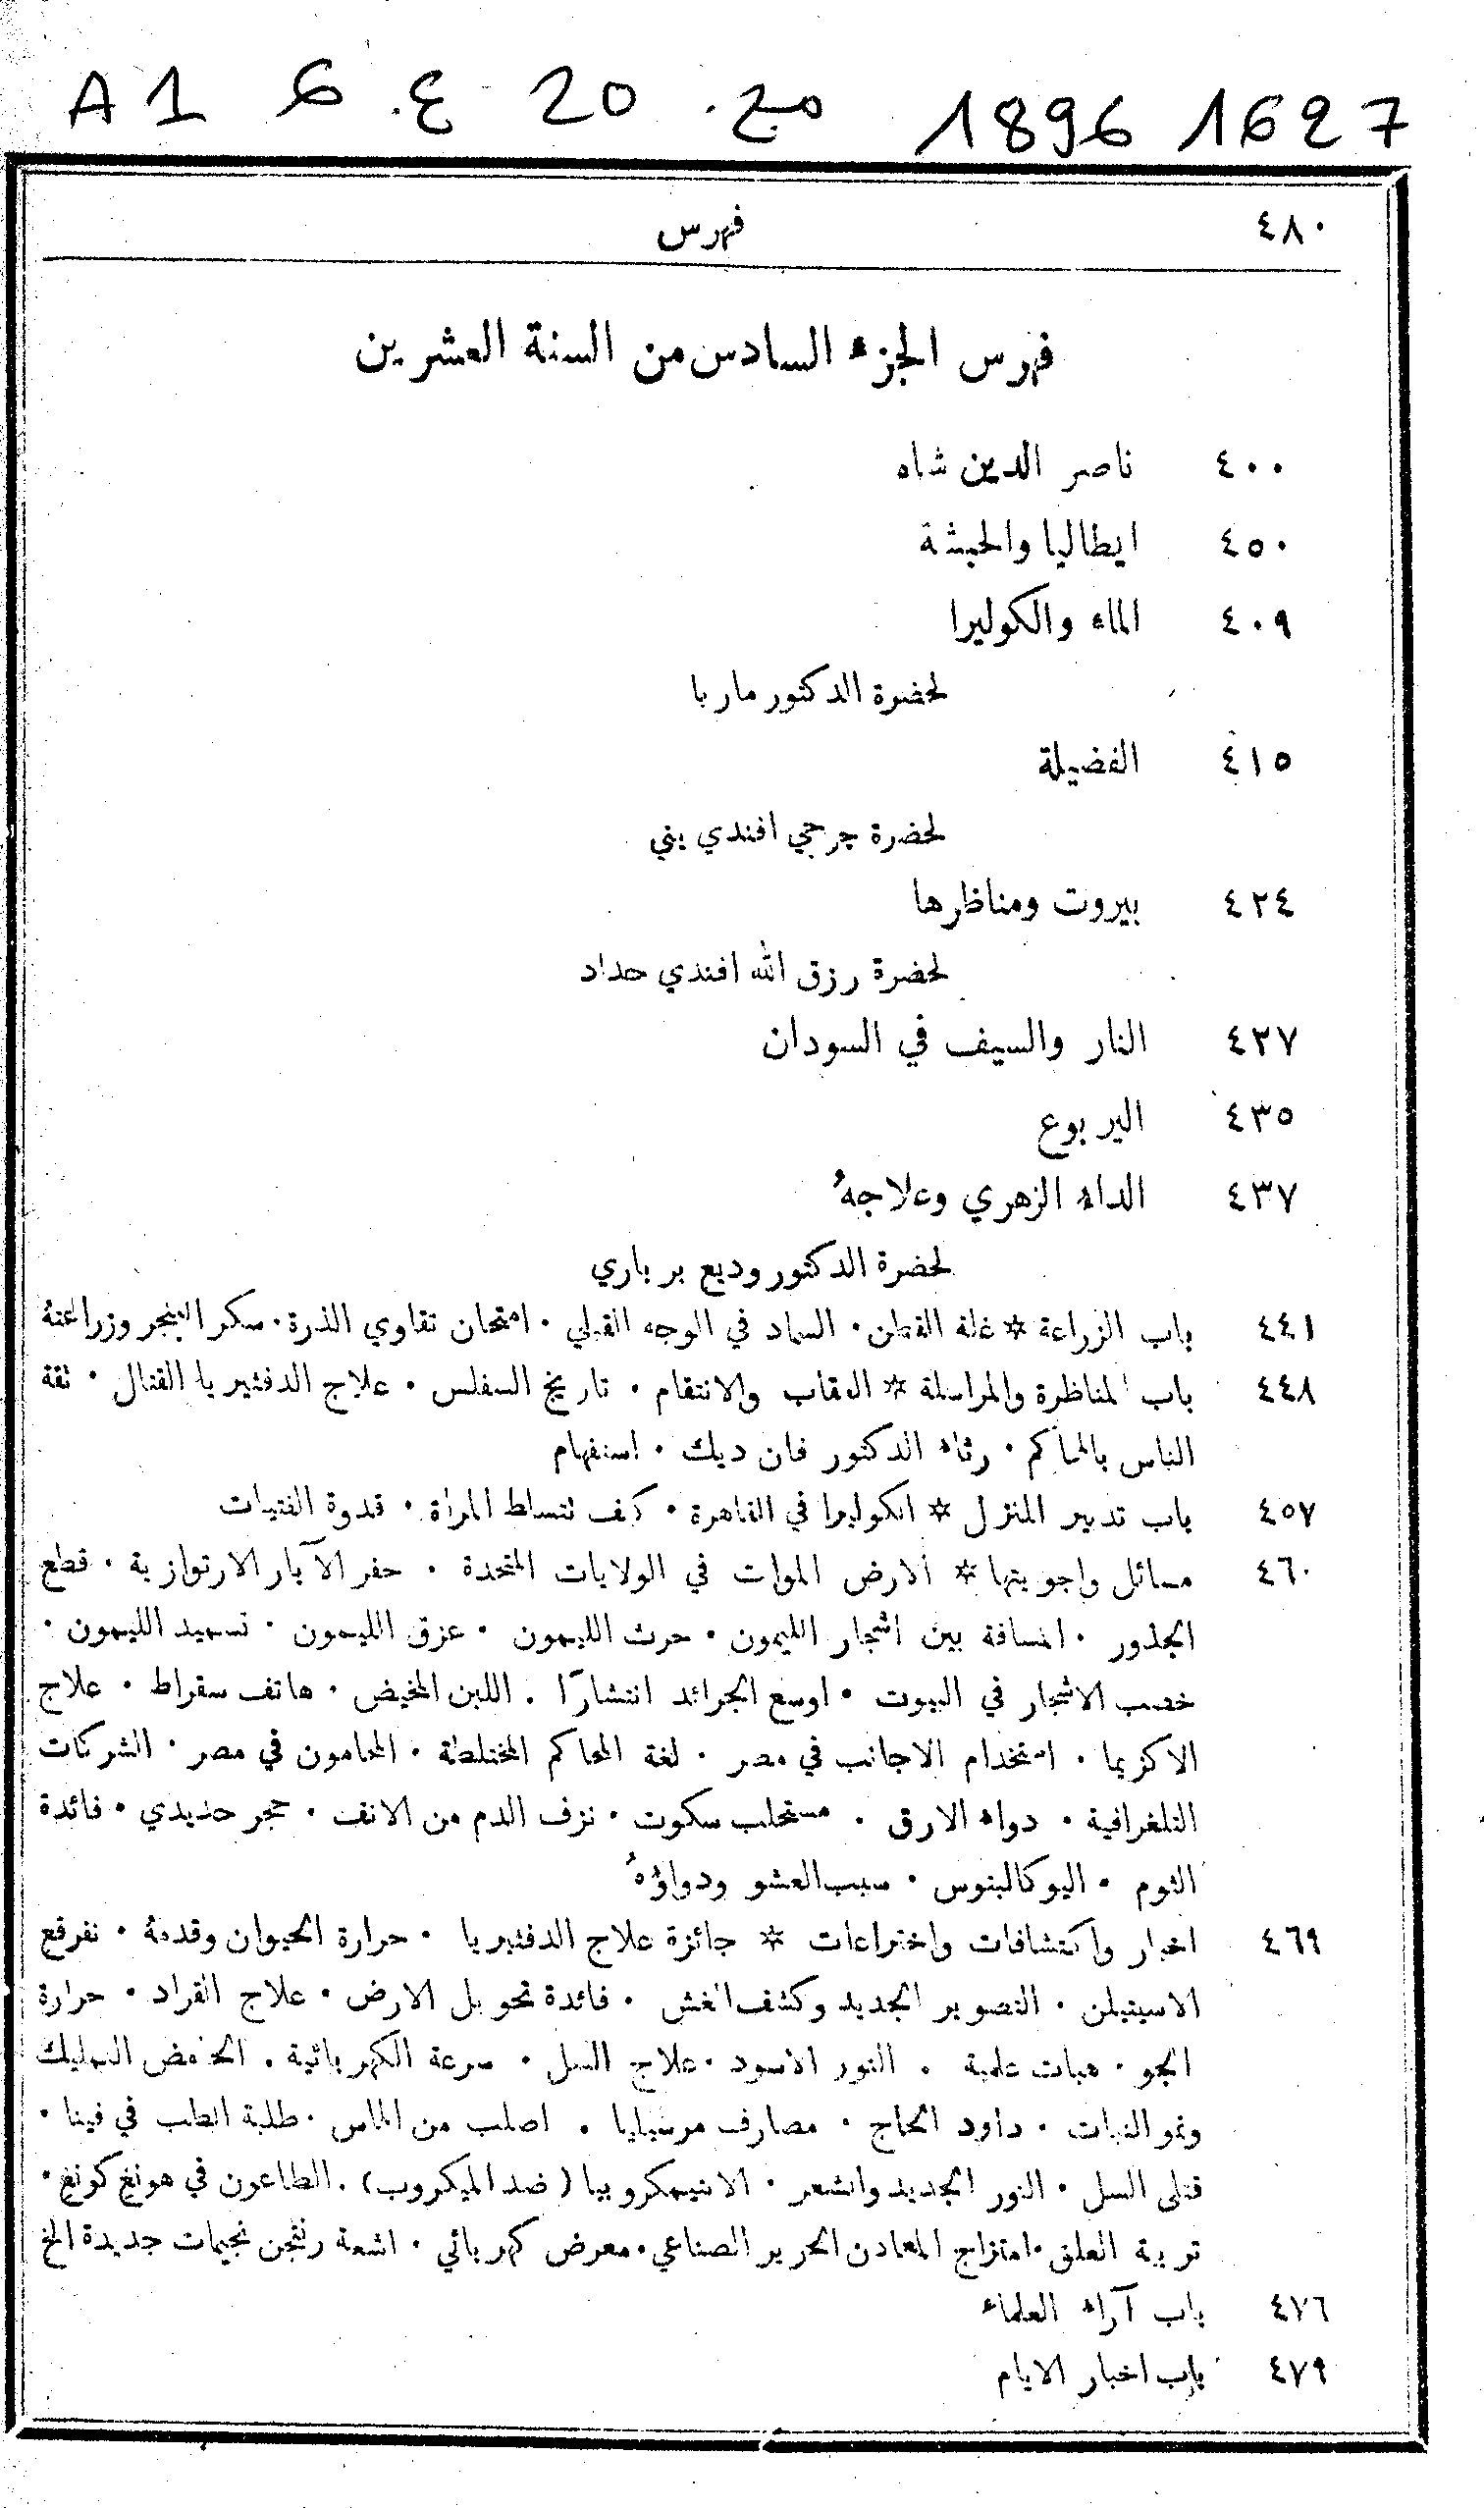 A1 6 ع. 20 مج. 1896 1627
٤٨٠ فهرس
فهرس الجزء السادس من السنة العشرين
٤٠٠ ناصر الدين شاه
٤٥٠ ايطاليا والحبشة
٤٠٩ الماء والكوليرا
لحضرة الدكتور ماربا
٤١٥ الفضيلة
لحضرة جرجي افندي يني
٤٢٤ بيروت ومناظرها
لحضرة رزق الله افندي حداد
٤٢٧ النار والسيف في السودان
٤٣٥ اليربوع
٤٣٧ الداء الزهري وعلاجهُ
لحضرة الدكتور وديع برباري
٤٤١ باب الزراعة * غلة القطن . السماد في الوجه القبلي . امتحان تقاوي الذرة . سكر البنجر وزراعتهُ
٤٤٨ باب المناظرة والمراسلة * العقاب والانتقام . تاريخ السفلس . علاج الدفثيريا القتال . ثقة
الناس بالمحاكم . رثاء الدكتور فان ديك . استفهام
٤٥٧ باب تدبير المنزل * الكوليرا في القاهرة . كيف تتسلط المراة . قدوة الفتيات
٤٦٠ مسائل واجوبتها * الارض الموات في الولايات المتحدة . حفر الآبار الارتوازية . قطع
الجذور . المسافة بين اشجار الليمون . حرث الليمون . عزق الليمون . تسميد الليمون .
خصب الاشجار في البيوت . اوسع الجرائد انتشارًا . اللبن المخيض . هاتف سقراط . علاج
الاكزيما . استخدام الاجانب في مصر . لغة المحاكم المختلطة . المحامون في مصر . الشركات
التلغرافية . دواء الارق . مستحلب سكوت . نزف الدم من الانف . حجر حديدي . فائدة
الثوم . اليوكالبتوس . سبب العشو ودواؤهُ
٤٦٩ اخبار واكتشافات واختراعات * جائزة علاج الدفثيريا . حرارة الحيوان وقدمهُ . تفرقع
الاسيتيلن . التصوير الجديد وكشف الغش . فائدة تحويل الارض . علاج القراد . حرارة
الجو . هبات علمية . النور الاسود . علاج السل . سرعة الكهربائية . الحامض السمليك
ونمو النبات . داود الحاج . مصارف مرسيليا . اصلب من الماس . طلبة الطب في فينا .
قتلى السل . النور الجديد والشعر . الانتيمكروبيا (ضد الميكروب) . الطاعون في هونغ كونغ .
تربية العلق . امتزاج المعادن الحرير الصناعي . معرض كهربائي . اشعة رنتجن نجيمات جديدة الخ
٤٧٦ باب آراء العلماء
٤٧٩ باب اخبار الايام